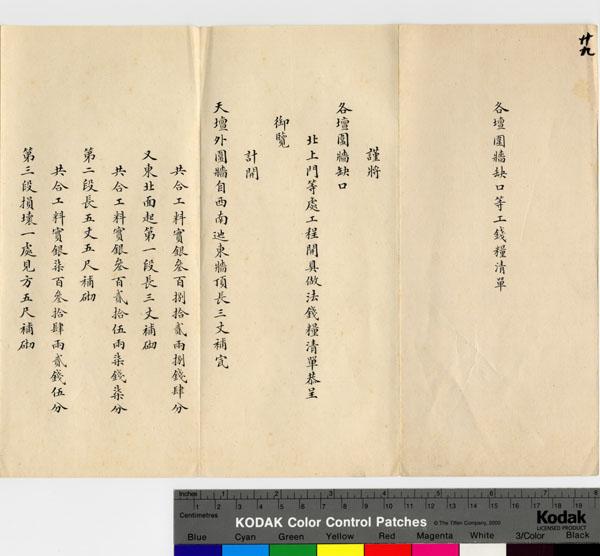 廿九
各壇圍牆缺口等工錢糧清單
謹將
各壇圍牆缺口
北上門等處工程開具做法錢糧清單恭呈
御覽
計開
天壇外圍牆自西南迤東牆頂長三丈補宽
共合工料實銀叁百捌拾貳兩捌錢肆分
又東北面起第一段長三丈補砌
共合工料實銀叁百貳拾伍兩柒錢柒分
第二段長五丈五尺補砌
共合工料實銀柒百叁拾肆兩貳錢伍分
第三段損壞一處見方五尺補砌
Inches 1 2 3 4 5 6 7 8
Centimetres 1 2 3 4 5 6 7 8 9 10 11 12 13 14 15 16 17 18 19
KODAK Color Control Patches © The Tiffen Company, 2000 Kodak
LICENSED PRODUCT
Blue Cyan Green Yellow Red Magenta White 3/Color Black